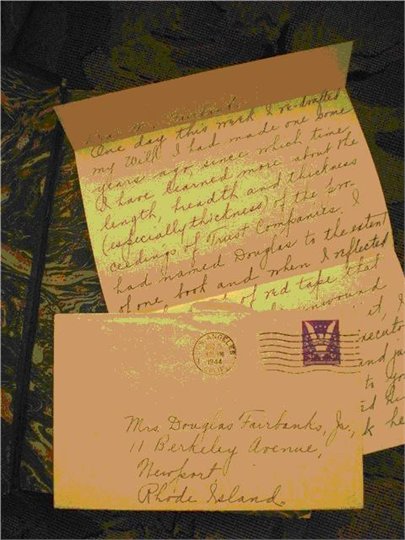 Dear Mrs. Fairbanks,
One day this week I re-drafted
my Will. I had made one some
years ago, since which time,
I have learned more about the
length, breadth and thickness
(especially thickness) of the pro-
ceedings of Trust Companies. I
had named Douglas to the extent
of one book and when I reflected
of red tape that
unwound
et, I
executor
and ju
to yo
k he
ANGELES
1944
CALIF.
Mrs Douglas Fairbanks, Jr.,
11 Berkeley Avenue,
Newport
Rhode Island.